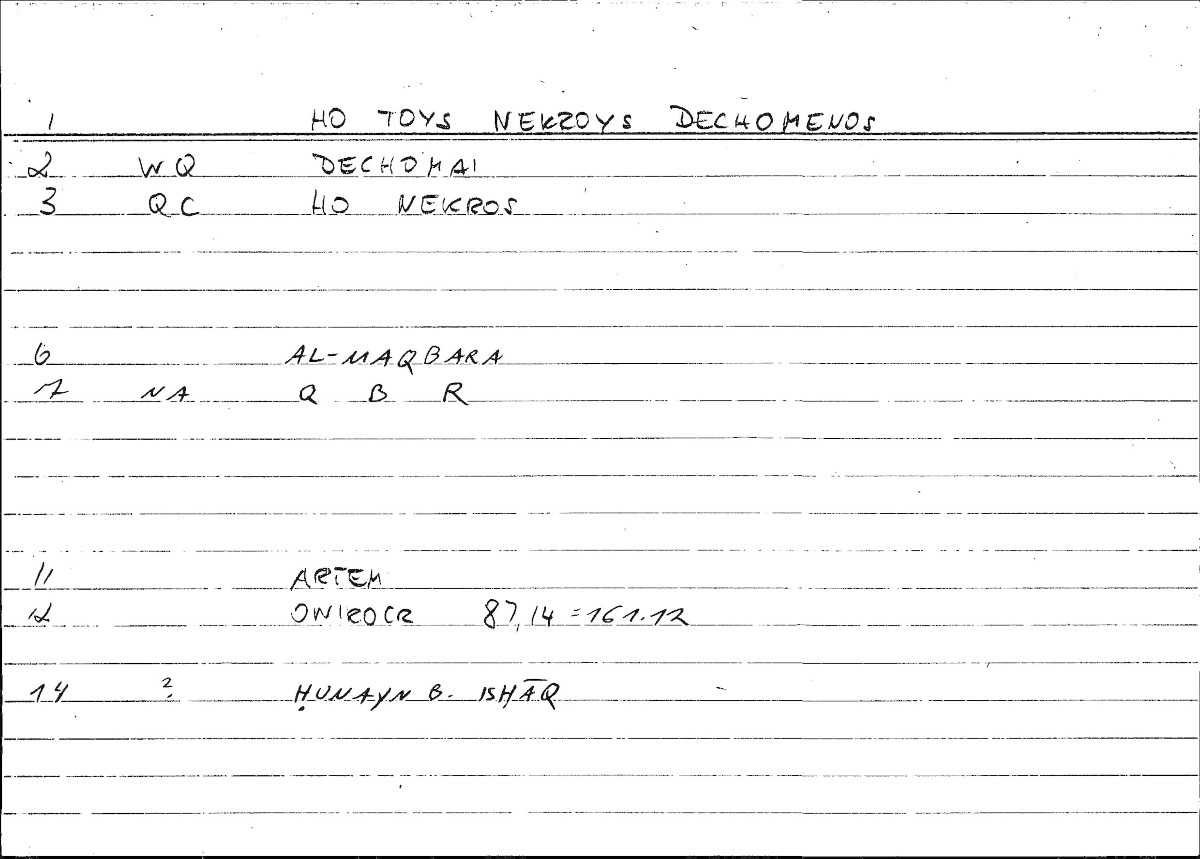 1 HO TOYS NEKROYS DECHOMENOS
2 WQ DECHOMAI
3 QC HO NEKROS
6 AL-MAQBARA
7 NA Q B R
11 ARTEM
12 ONIROCR 87,14 = 161.12
14 ? ḤUNAYN B. ISḤĀQ